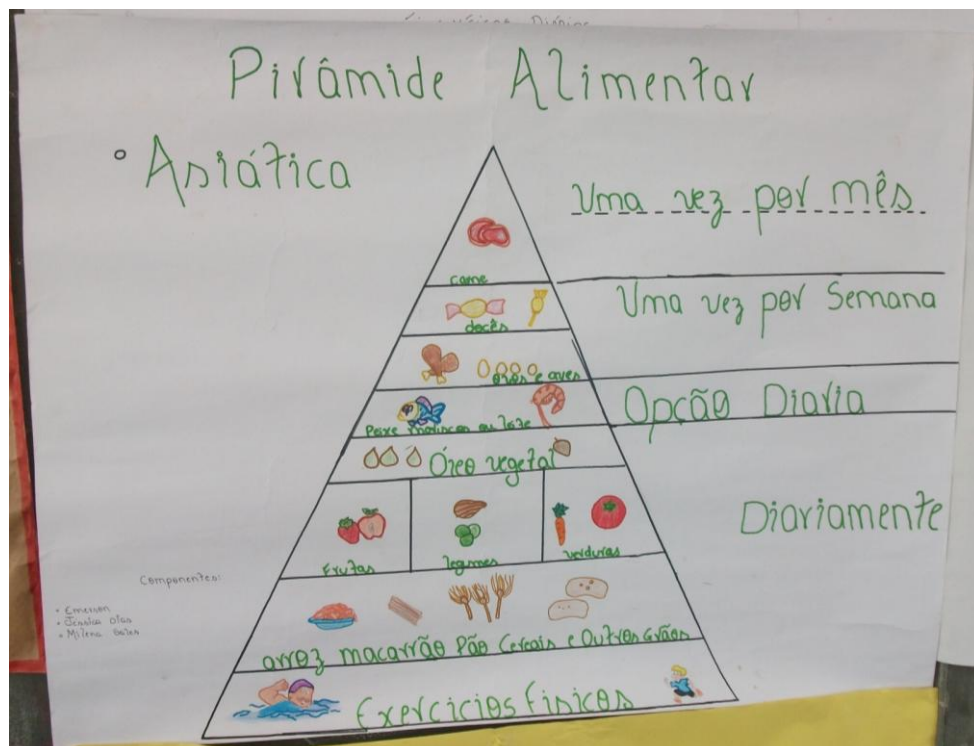 Pirâmide Alimentar
• Asiática
Uma vez por mês
carne
Uma vez por Semana
docês
ovos e aves
Opção Diaria
Peixe mariscos ou leite
Óleo vegetal
Diariamente
Frutas
legumes
verduras
arroz macarrão Pão Cereais e Outros Grãos
Exercicios Fisicos
Componentes:
• Emerson
• Jessica Dias
• Milena Sales